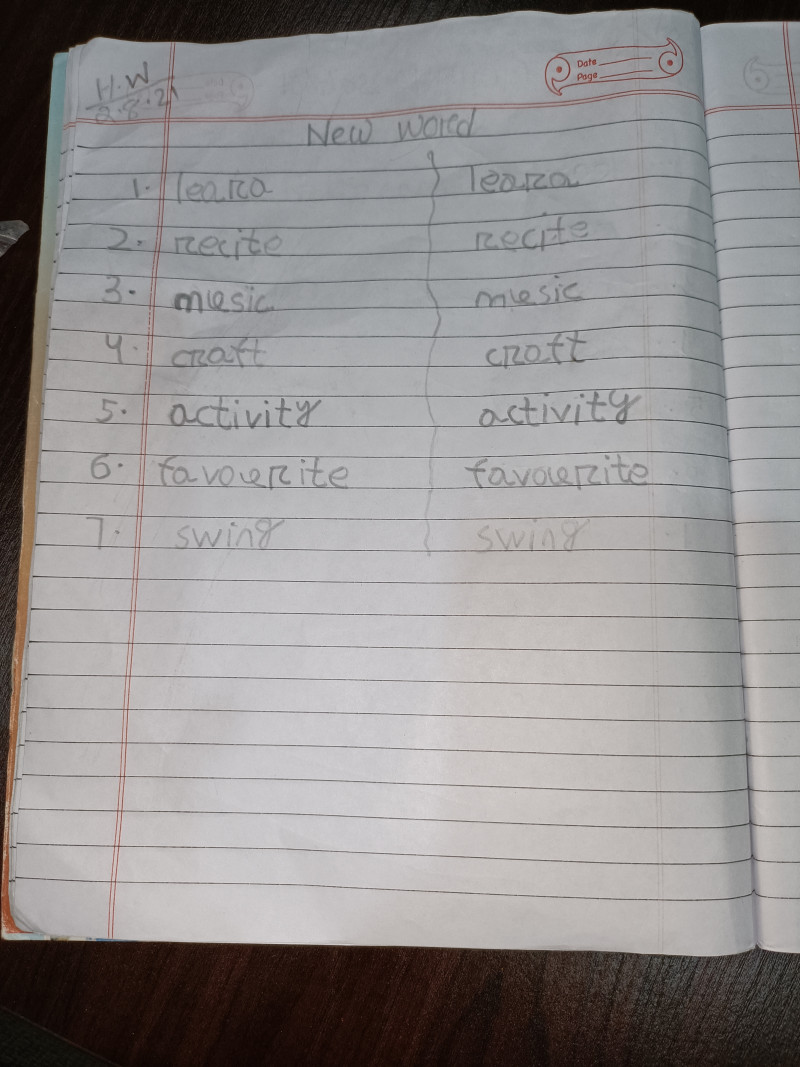 H.W
2.8.21
Date
Page
New Word
1. learn learn
2. recite recite
3. music music
4. craft craft
5. activity activity
6. favourite favourite
7. swing swing